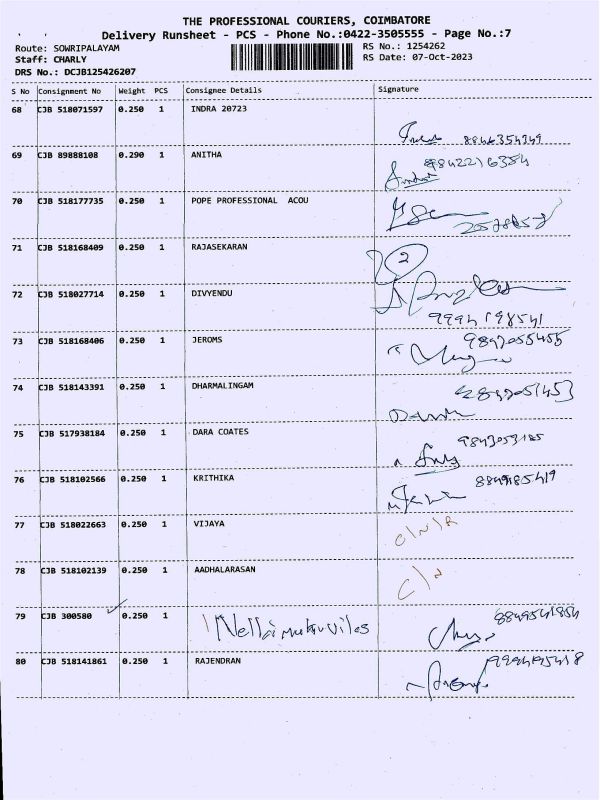 THE PROFESSIONAL COURIERS, COIMBATORE
Delivery Runsheet - PCS - Phone No.:0422-3505555 - Page No.:7
Route: SOWRIPALAYAM RS No.: 1254262
Staff: CHARLY RS Date: 07-Oct-2023
DRS No.: DCJB125426207
S No Consignment No Weight PCS Consignee Details Signature
68 CJB 518071597 0.250 1 INDRA 20723
69 CJB 89888108 0.290 1 ANITHA
70 CJB 518177735 0.250 1 POPE PROFESSIONAL ACOU
71 CJB 518168409 0.250 1 RAJASEKARAN
2
72 CJB 518027714 0.250 1 DIVYENDU
73 CJB 518168406 0.250 1 JEROMS
74 CJB 518143391 0.250 1 DHARMALINGAM
75 CJB 517938184 0.250 1 DARA COATES
76 CJB 518102566 0.250 1 KRITHIKA
77 CJB 518022663 0.250 1 VIJAYA
78 CJB 518102139 0.250 1 AADHALARASAN
79 CJB 300580 0.250 1
80 CJB 518141861 0.250 1 RAJENDRAN